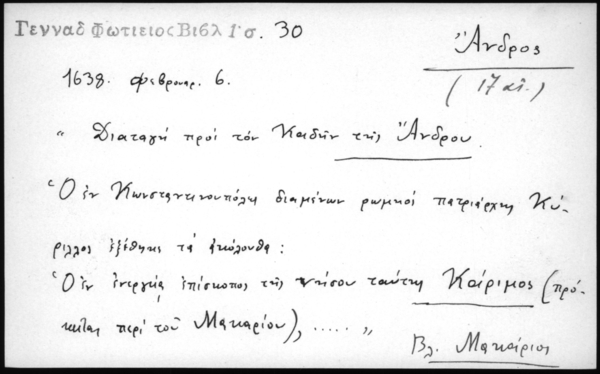 Γενναδ Φωτιειος Βιβλ 1 σ. 30
Ἄνδρος
(17 αἰ.)
1638. Φεβρουαρ. 6.
"Διαταγή πρός τόν Καδῆν τῆς Ἄνδρου.
Ὁ ἐν Κωνσταντινουπόλει διαμένων ρωμηός πατριάρχης Κύ-
ριλλος ἐξέθηκε τά ἀκόλουθα:
Ὁ ἐν ἐνεργείᾳ ἐπίσκοπος τῆς νήσου ταύτης Καίριμος (πρό-
κειται περί τοῦ Μακαρίου), ..... "
Βλ. Μακάριος